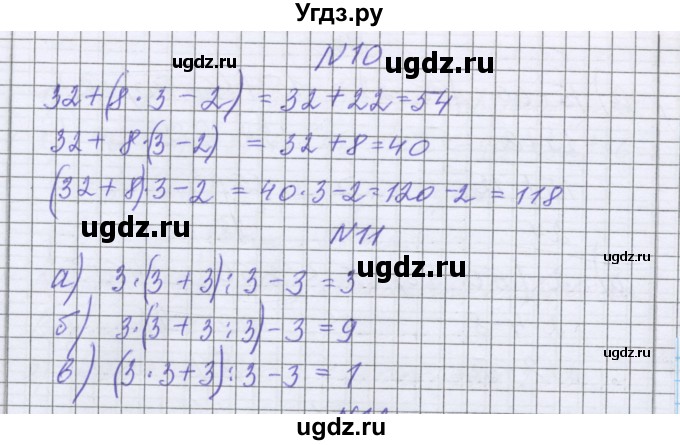 Угдз.ру
ugdz.ru
N10
ugdz.ru
32+(8·3-2) = 32+22=54
32+ 8·(3-2) = 32+8=40
(32+8)·3-2 = 40·3-2=120-2 = 118
ugdz.ru
N11
ugdz.ru
а) 3·(3+3):3-3=3
б) 3·(3+3:3)-3=9
ugdz.ru
в) (3·3+3):3-3=1
ugdz.ru
ugdz.ru